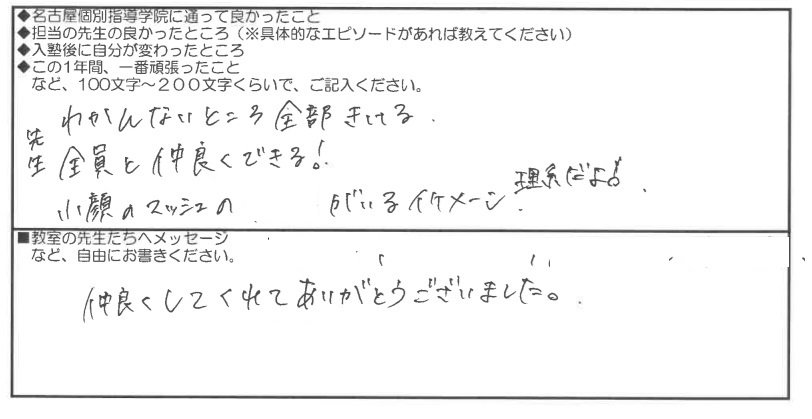 ◆名古屋個別指導学院に通って良かったこと
◆担当の先生の良かったところ（※具体的なエピソードがあれば教えてください）
◆入塾後に自分が変わったところ
◆この1年間、一番頑張ったこと
など、100文字～200文字くらいで、ご記入ください。
わかんないところ全部きいてる.
先生全員と仲良くできる!
小顔のマッシュの がいるイケメーン. 理系だよ!
■教室の先生たちへメッセージ
など、自由にお書きください。
仲良くしてくれてありがとうございました。